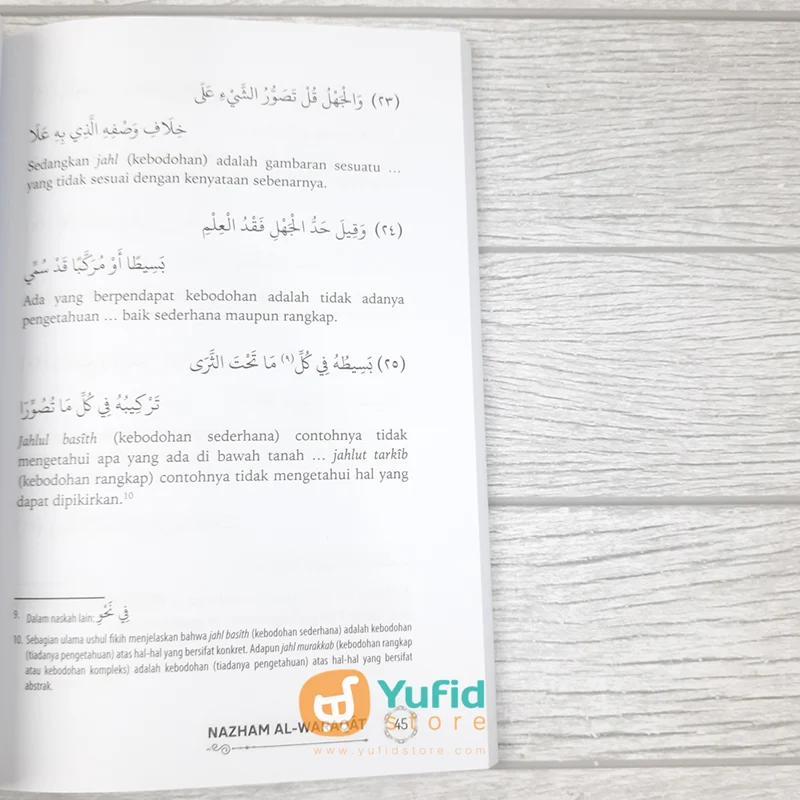 (٢٣) وَالْجَهْلُ قُلْ تَصَوُّرُ الشَّيْءِ عَلَى
خِلَافِ وَصْفِهِ الَّذِي بِهِ عَلَا
Sedangkan jahl (kebodohan) adalah gambaran sesuatu ...
yang tidak sesuai dengan kenyataan sebenarnya.
(٢٤) وَقِيلَ حَدُّ الْجَهْلِ فَقْدُ الْعِلْمِ
بَسِيطًا أَوْ مُرَكَّبًا قَدْ سُمِّي
Ada yang berpendapat kebodohan adalah tidak adanya
pengetahuan ... baik sederhana maupun rangkap.
(٢٥) بَسِيطُهُ فِي كُلِّ(٩) مَا تَحْتَ الثَّرَى
تَرْكِيبُهُ فِي كُلِّ مَا تُصُوِّرَا
Jahlul basîth (kebodohan sederhana) contohnya tidak
mengetahui apa yang ada di bawah tanah ... jahlut tarkîb
(kebodohan rangkap) contohnya tidak mengetahui hal yang
dapat dipikirkan.10
9. Dalam naskah lain: فِي نَحْوِ
10. Sebagian ulama ushul fikih menjelaskan bahwa jahl basîth (kebodohan sederhana) adalah kebodohan
(tiadanya pengetahuan) atas hal-hal yang bersifat konkret. Adapun jahl murakkab (kebodohan rangkap
atau kebodohan kompleks) adalah kebodohan (tiadanya pengetahuan) atas hal-hal yang bersifat
abstrak.
NAZHAM AL-WARAQÂT 45
Yufid
store
www.yufidstore.com